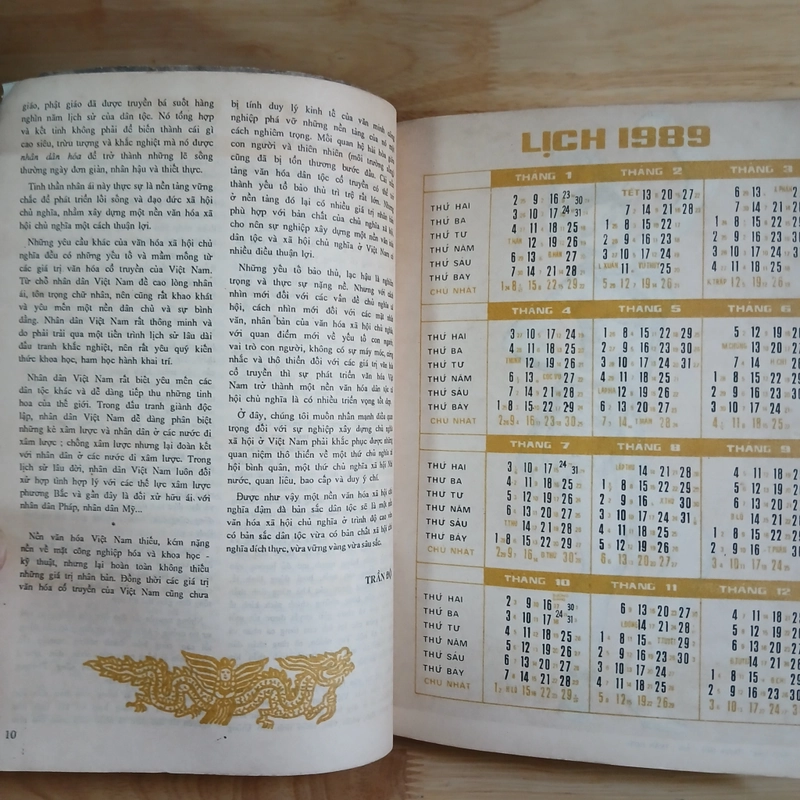 giáo, phật giáo đã được truyền bá suốt hàng
nghìn năm lịch sử của dân tộc. Nó tổng hợp
và kết tinh không phải để biến thành cái gì
cao siêu, trừu tượng và khắc nghiệt mà nó được
nhân dân hóa để trở thành những lẽ sống
thường ngày đơn giản, nhân hậu và thiết thực.
Tinh thần nhân ái này thực sự là nền tảng vững
chắc để phát triển lối sống và đạo đức xã hội
chủ nghĩa, nhằm xây dựng một nền văn hóa xã
hội chủ nghĩa một cách thuận lợi.
Những yêu cầu khác của văn hóa xã hội chủ
nghĩa đều có những yếu tố và mầm mống từ
các giá trị văn hóa cổ truyền của Việt Nam.
Từ chỗ nhân dân Việt Nam đề cao lòng nhân
ái, tôn trọng chữ nhân, nên cũng rất khao khát
và yêu mến một nền dân chủ và sự bình
đẳng. Nhân dân Việt Nam rất thông minh và
do phải trải qua một tiến trình lịch sử lâu dài
đấu tranh khắc nghiệt, nên rất yêu quý kiến
thức khoa học, ham học hành khai trí.
Nhân dân Việt Nam rất biết yêu mến các
dân tộc khác và dễ dàng tiếp thu những tinh
hoa của thế giới. Trong đấu tranh giành độc
lập, nhân dân Việt Nam dễ dàng phân biệt
những kẻ xâm lược và nhân dân ở các nước đi
xâm lược ; chống xâm lược nhưng lại đoàn kết
với nhân dân ở các nước đi xâm lược. Trong
lịch sử lâu đời, nhân dân Việt Nam luôn đối
xử hợp tình hợp lý với các thế lực xâm lược
phương Bắc và gần đây là đối xử hữu ái với
nhân dân Pháp, nhân dân Mỹ...
*
Nền văn hóa Việt Nam thiếu, kém nặng
nề về mặt công nghiệp hóa và khoa học -
kỹ thuật, nhưng lại hoàn toàn không thiếu
những giá trị nhân bản. Đồng thời các giá trị
văn hóa cổ truyền của Việt Nam cũng chưa
bị tính duy lý kinh tế của văn minh công
nghiệp phá vỡ những nền tảng của nó một
cách nghiêm trọng. Mối quan hệ hài hòa giữa
con người và thiên nhiên (môi trường sống)
cũng đã bị tổn thương bước đầu. Cái nền
tảng văn hóa dân tộc cổ truyền có thể có
thành yếu tố bảo thủ trì trệ rất lớn. Nhưng
ở nền tảng đó lại có nhiều giá trị nhân bản
phù hợp với bản chất của chủ nghĩa xã hội
cho nên sự nghiệp xây dựng một nền văn hóa
dân tộc và xã hội chủ nghĩa ở Việt Nam có
nhiều điều thuận lợi.
Những yếu tố bảo thủ, lạc hậu là nghiêm
trọng và thực sự nặng nề. Nhưng với cách
nhìn mới đối với các vấn đề chủ nghĩa xã
hội, cách nhìn mới đối với các mặt nhân
văn, nhân bản của văn hóa xã hội chủ nghĩa
với quan điểm mới về yếu tố con người,
vai trò con người, không có sự máy móc, cứng
nhắc và thô thiển đối với các giá trị văn hóa
cổ truyền thì sự phát triển văn hóa Việt
Nam trở thành một nền văn hóa dân tộc xã
hội chủ nghĩa là có nhiều triển vọng tốt đẹp.
Ở đây, chúng tôi muốn nhấn mạnh điều quan
trọng đối với sự nghiệp xây dựng chủ nghĩa
xã hội ở Việt Nam phải khắc phục được những
quan niệm thô thiển về một thứ chủ nghĩa xã
hội bình quân, một thứ chủ nghĩa xã hội Nhà
nước, quan liêu, bao cấp và duy ý chí.
Được như vậy một nền văn hóa xã hội chủ
nghĩa đậm đà bản sắc dân tộc sẽ là một nền
văn hóa xã hội chủ nghĩa ở trình độ cao vừa
có bản sắc dân tộc vừa có bản chất xã hội chủ
nghĩa đích thực, vừa vững vàng vừa sâu sắc.
TRẦN ĐỘ
10
LỊCH 1989
THÁNG 1 THÁNG 2 THÁNG 3
THỨ HAI 2 9 16 23 30 TẾT 13 20 27 6 13
THỨ BA 3 10 17 24 31 7 14 21 28 7 14 21 28
THỨ TƯ 4 11 18 25 1 8 15 22 1 8 15 22
THỨ NĂM 12 19 26 2 9 16 23 2 9 16 23
THỨ SÁU 6 13 27 3 10 17 24 3 10 17 24
THỨ BẢY 7 14 21 28 11 4 11 18 25
CHỦ NHẬT 1 8 15 22 29 5 12 19 26 12 19
THÁNG 4 THÁNG 5 THÁNG 6
THỨ HAI 3 10 17 24 1 8 15 22 29 5 12 19
THỨ BA 4 11 18 25 2 9 16 23 30 13 20
THỨ TƯ 12 19 26 3 10 17 24 31 7 14
THỨ NĂM 6 13 27 4 11 18 25 1 8 15 22
THỨ SÁU 7 14 21 28 12 19 26 2 9 16 23
THỨ BẢY 1 8 15 22 29 6 13 20 27 3 10 17 24
CHỦ NHẬT 2 9 16 23 30 7 14 28 4 11 18
THÁNG 7 THÁNG 8 THÁNG 9
THỨ HAI 3 10 17 24 31 14 21 28 4 11 18
THỨ BA 4 11 18 25 1 8 15 22 29 5 12 19
THỨ TƯ 5 12 19 26 2 9 16 30 6 13 20
THỨ NĂM 6 13 20 27 3 10 17 24 31 14 21
THỨ SÁU 14 21 28 4 11 18 25 1 8 15 22
THỨ BẢY 1 8 15 22 29 5 12 19 26 2 9 16
CHỦ NHẬT 2 9 16 30 6 13 20 27 3 10 17 24
THÁNG 10 THÁNG 11 THÁNG 12
THỨ HAI 2 9 16 30 6 13 20 27 4 11 18 25
THỨ BA 3 10 17 24 31 14 21 28 5 12 19
THỨ TƯ 4 11 18 25 1 8 15 29 6 13 20
THỨ NĂM 5 12 19 26 2 9 16 23 30 14 21
THỨ SÁU 6 13 20 27 3 10 17 24 1 8 15
THỨ BẢY 7 14 21 28 4 11 18 25 2 9 16 23
CHỦ NHẬT 1 15 22 29 5 12 19 26 3 10 17